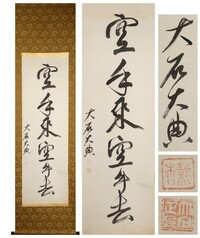 空手来空手去
大石大典
空手来空手去
大石大典
大石大典